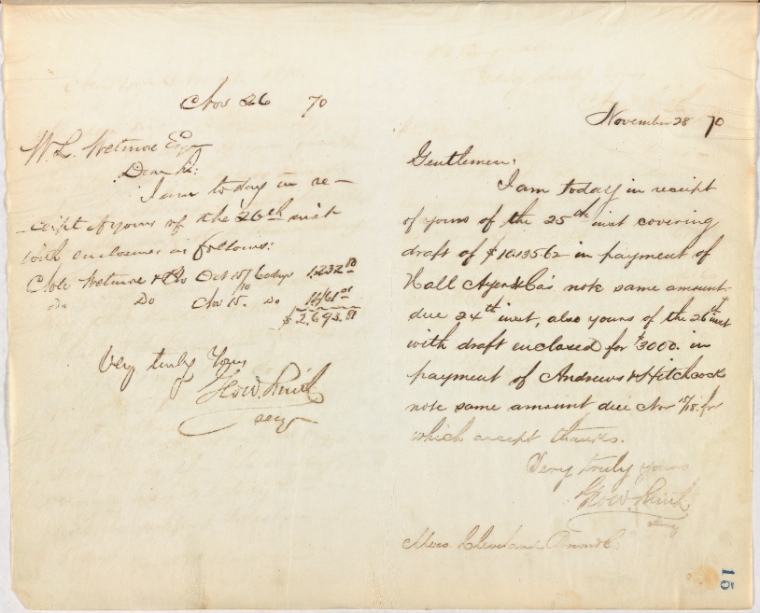 Nov 26 70
W. L. Wetmore Esq
Dear Sir:
I am to day in re-
-ceipt of yours of the 26th inst
with enclosures as follows:
Wetmore & Bro Oct 15/70 60 days 1,232 80
Do Do Nov 15. Do 1461 01
$2,693.81
Very truly Yours
Geo W.
secy
November 28 70
Gentlemen:
I am today in receipt
of yours of the 25th inst covering
draft of $10135.62 in payment of
Hall Ayer & Co's note same amount
due 24th inst, also yours of the 26th inst
with draft enclosed for $3000. in
payment of Andrews & Hitchcock
note same amount due Nov 15/18. for
which accept thanks.
Very truly yours
Geo W.
Secy
Mess Cleveland
15